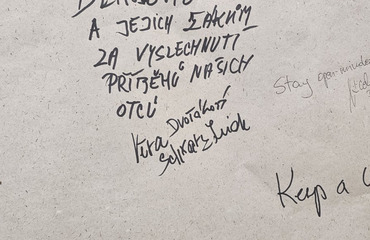 A JEJICH ŽÁKŮM
ZA VYSLECHNUTÍ
PŘÍBĚHŮ NAŠICH
OTCŮ
Věra Dvořáková
Stay open-minded
Keep a